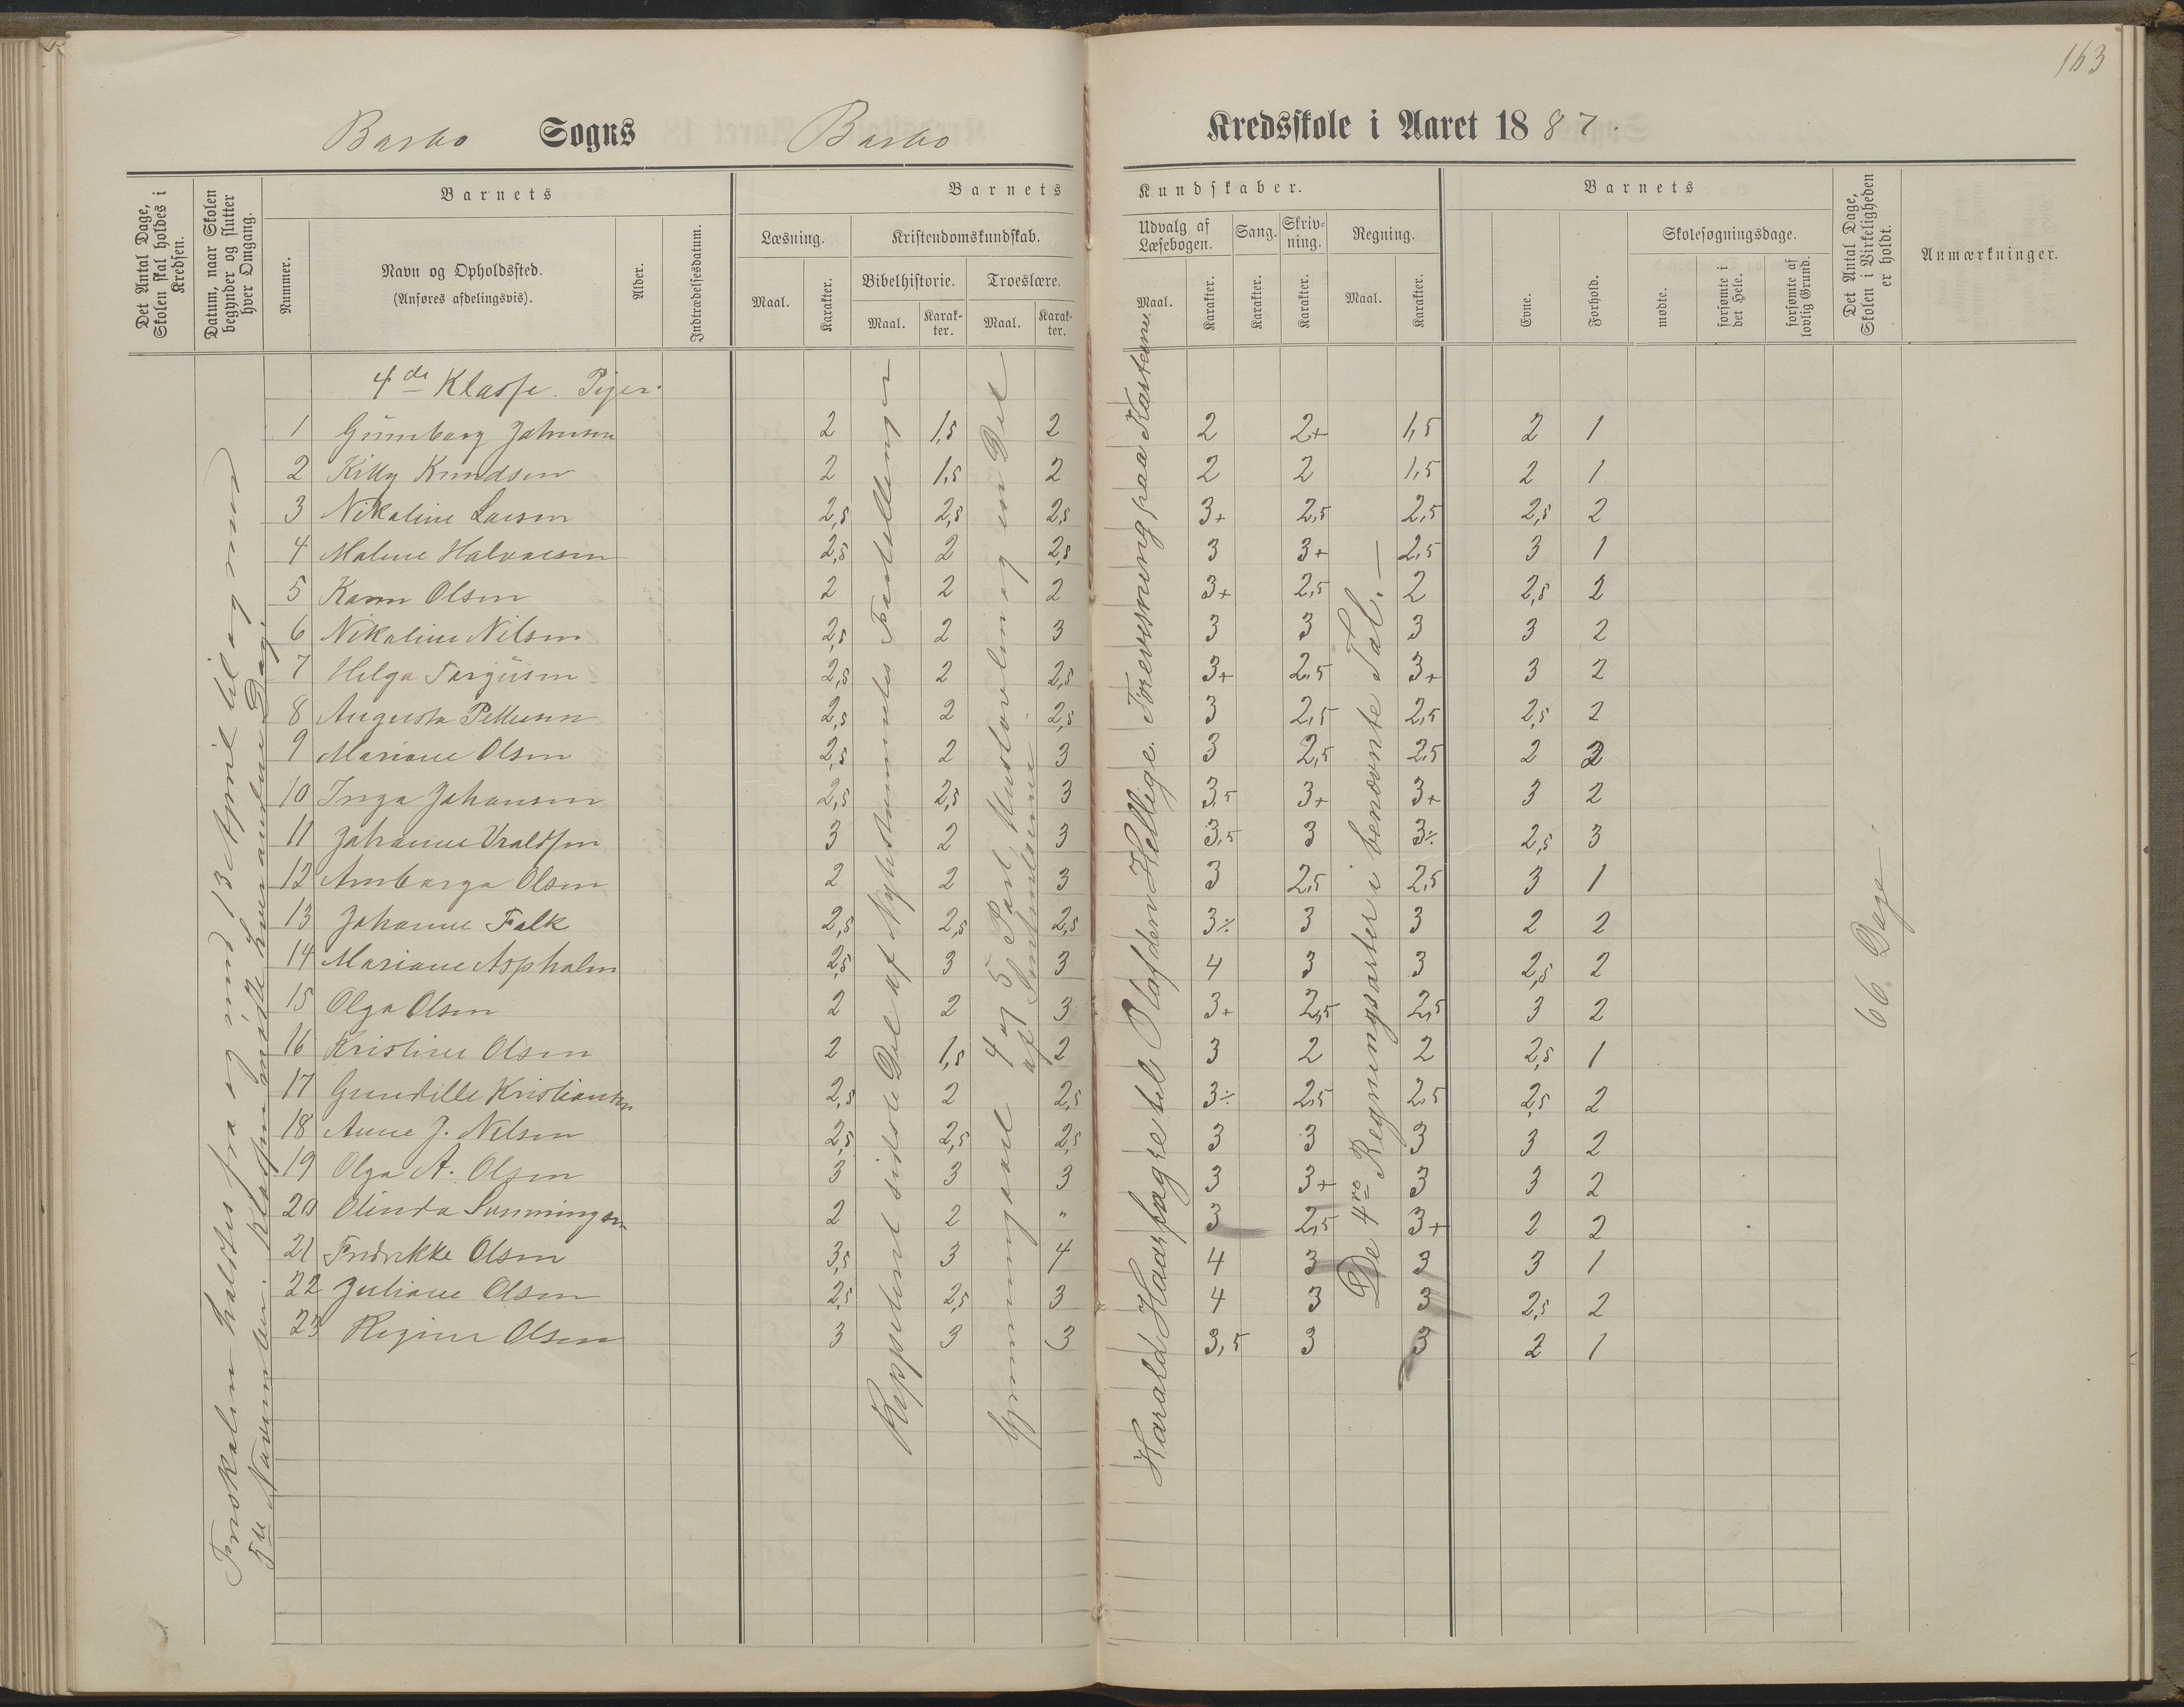 163
Barbo Sogns Barbo Kredsskole i Aaret 1887.
Det Antal Dage, Skolen skal holdes i Kredsen.
Datum, naar Skolen begynder og slutter hver Omgang.
Barnets
Nummer.
Navn og Opholdssted.
(Anføres afdelingsvis).
Alder.
Indtrædelsesdatum.
Barnets Kundskaber.
Læsning.
Maal.
Karakter.
Kristendomskundskab.
Bibelhistorie.
Maal.
Karakter.
Troeslære.
Maal.
Karakter.
Udvalg af Læsebogen.
Maal.
Karakter.
Sang.
Karakter.
Skrivning.
Karakter.
Regning.
Maal.
Karakter.
Barnets
Evne.
Forhold.
Skolesøgningsdage.
mødte.
forsømte i det Hele.
forsømte af lovlig Grund.
Det Antal Dage, Skolen i Virkeligheden er holdt.
Anmærkninger.
4de Klasse. Piger.
1 Gunborg Johnsen 2 1,5 2 2 2+ 1,5 2 1
2 Kitty Knudsen 2 1,5 2 2 2 1,5 2 1
3 Nikoline Larsen 2,5 2,5 2,5 3+ 2,5 2,5 2,5 2
4 Malene Halvorsen 2,5 2 2,5 3 3+ 2,5 3 1
5 Karen Olsen 2 2 2 3+ 2,5 2 2,5 2
6 Nikoline Nilsen 2,5 2 3 3 3 3 3 2
7 Helga Terjusen 2,5 2 2,5 3+ 2,5 3+ 3 2
8 Augusta Pettersen 2,5 2 2,5 3 2,5 2,5 2,5 2
9 Mariane Olsen 2,5 2 3 3 2,5 2,5 2 2
10 Inga Johansen 2,5 2,5 3 3,5 3+ 3+ 3 2
11 Johanne Vraldsen 3 2 3 3,5 3 3÷ 2,5 3
12 Amborga Olsen 2 2 3 3 2,5 2,5 3 1
13 Johanne Falk 2,5 2,5 2,5 3÷ 3 3 2 2
14 Mariane Aspholm 2,5 3 3 4 3 3 2,5 2
15 Olga Olsen 2 2 3 3+ 2,5 2,5 3 2
16 Kristine Olsen 2 1,5 2 3 2 2 2,5 1
17 Gundille Kristiansen 2,5 2 2,5 3÷ 2,5 2,5 2,5 2
18 Anne J. Nilsen 2,5 2,5 2,5 3 3 3 3 2
19 Olga A. Olsen 3 3 3 3 3+ 3 3 2
20 Olinda Sunningsen 2 2 " 3 2,5 3+ 2 2
21 Fredrikke Olsen 3,5 3 4 4 3 3 3 1
22 Juliane Olsen 2,5 2,5 3 4 3 3 2,5 2
23 Regine Olsen 3 3 3 3,5 3 3 2 1
holdtes fra og med 13 April til og med
5te November. Klassen mødte hver anden Dag.
Reppeteret sidste Del af Nytestamentes Fortællinger
Gjennemgaaet 4 og 5 Part, og en Del
af
Harald Haarfagre til Olaf den Hellige. Forevisning paa Karterne.
De 4re Regningsarter i benævnte Tal. —
66 Dage.